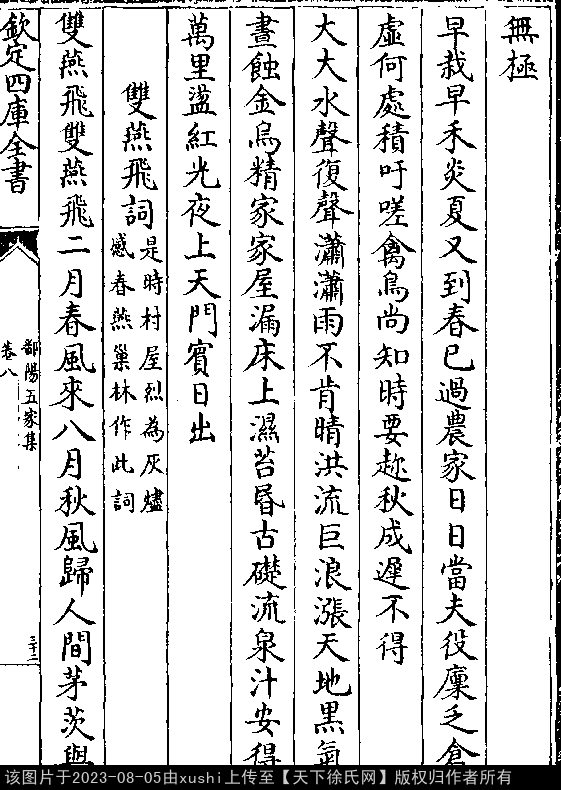 無極
早栽早禾炎夏又到春已過農家日日當夫役廩乏倉
虛何處積吁嗟禽鳥尚知時要趂秋成遲不得
大大水聲復聲瀟瀟雨不肯晴洪流巨浪漲天地黑氣
晝蝕金烏精家家屋漏床上濕苔昬古礎流泉汁安得
萬里盪紅光夜上天門賓日出
雙燕飛詞
是時村屋烈為灰燼
憾春燕巢林作此詞
雙燕飛雙燕飛二月春風來八月秋風歸人間茅茨與
欽定四庫全書
鄱陽五家集
卷八
三十二
该图片于2023-08-05由xushi上传至【天下徐氏网】版权归作者所有